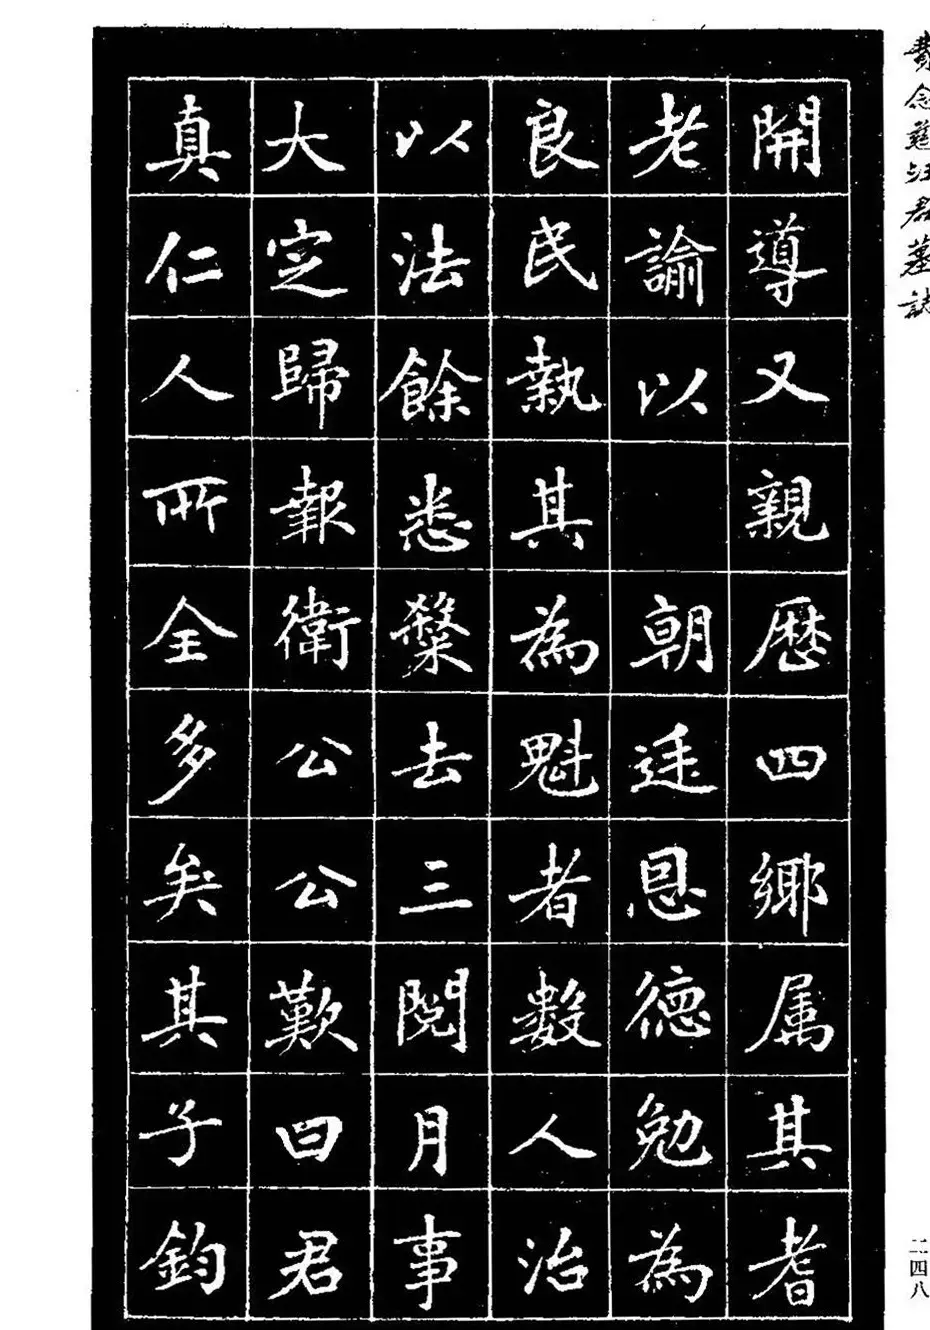 費念慈汪君墓誌
開導又親歷四鄉屬其耆
老諭以朝廷恩德勉為
良民執其為魁者數人治
以法餘悉槩去三閱月事
大定歸報衛公公歎曰君
真仁人所全多矣其子鈞
二四八